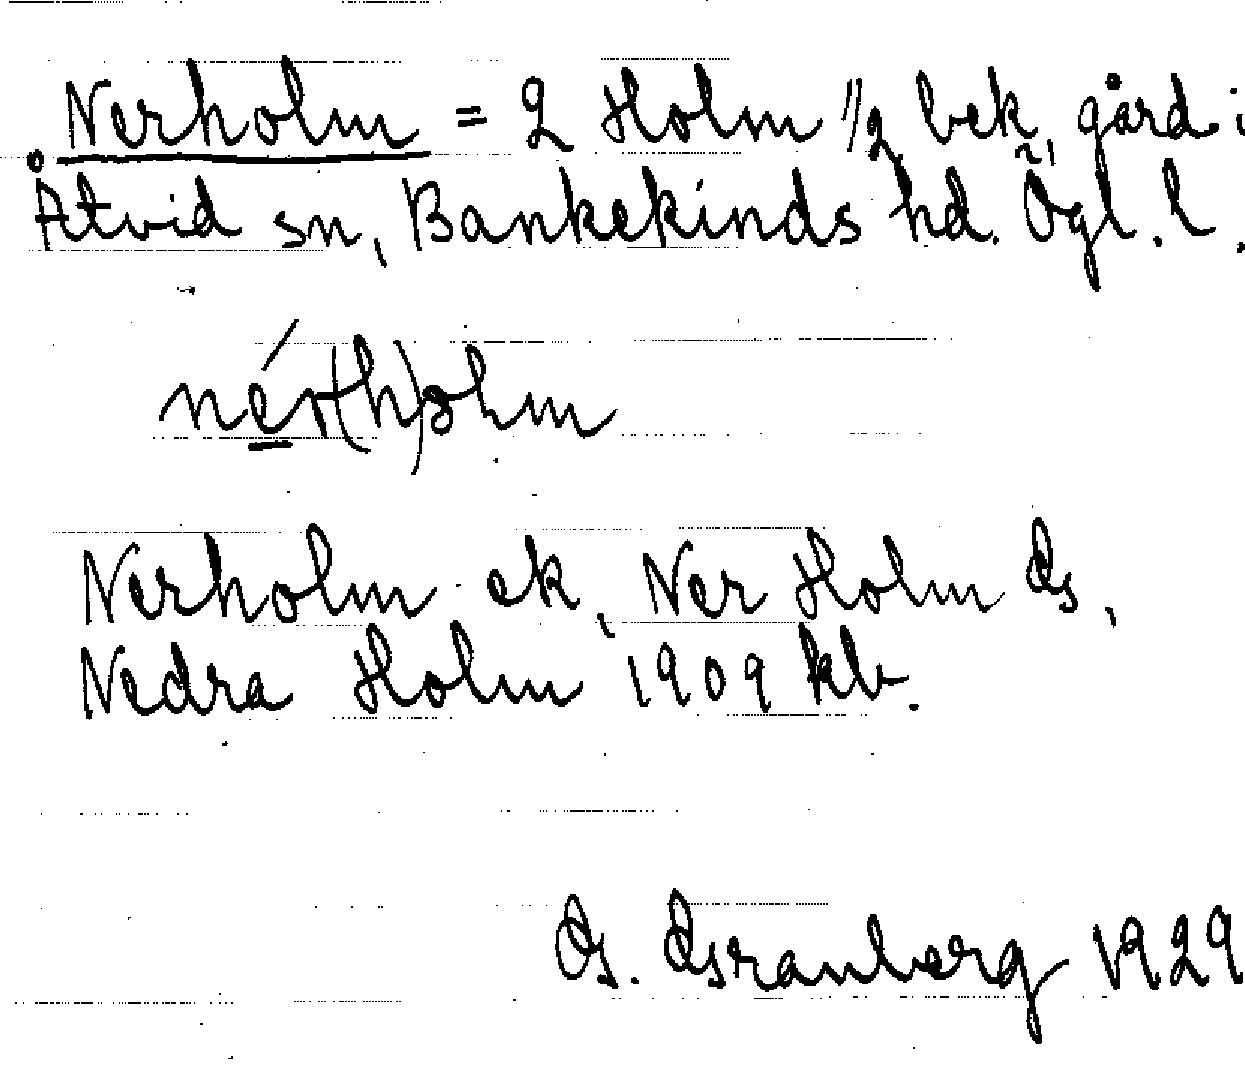 Nerholm = 2 Holm 1/2 bek, gård i
Åtvid sn, Bankekinds hd. Ögl. l.
nér(h)olm
Nerholm ek, Ner Holm Gs,
Nedra Holm 1909 kb.
G. Granberg 1929